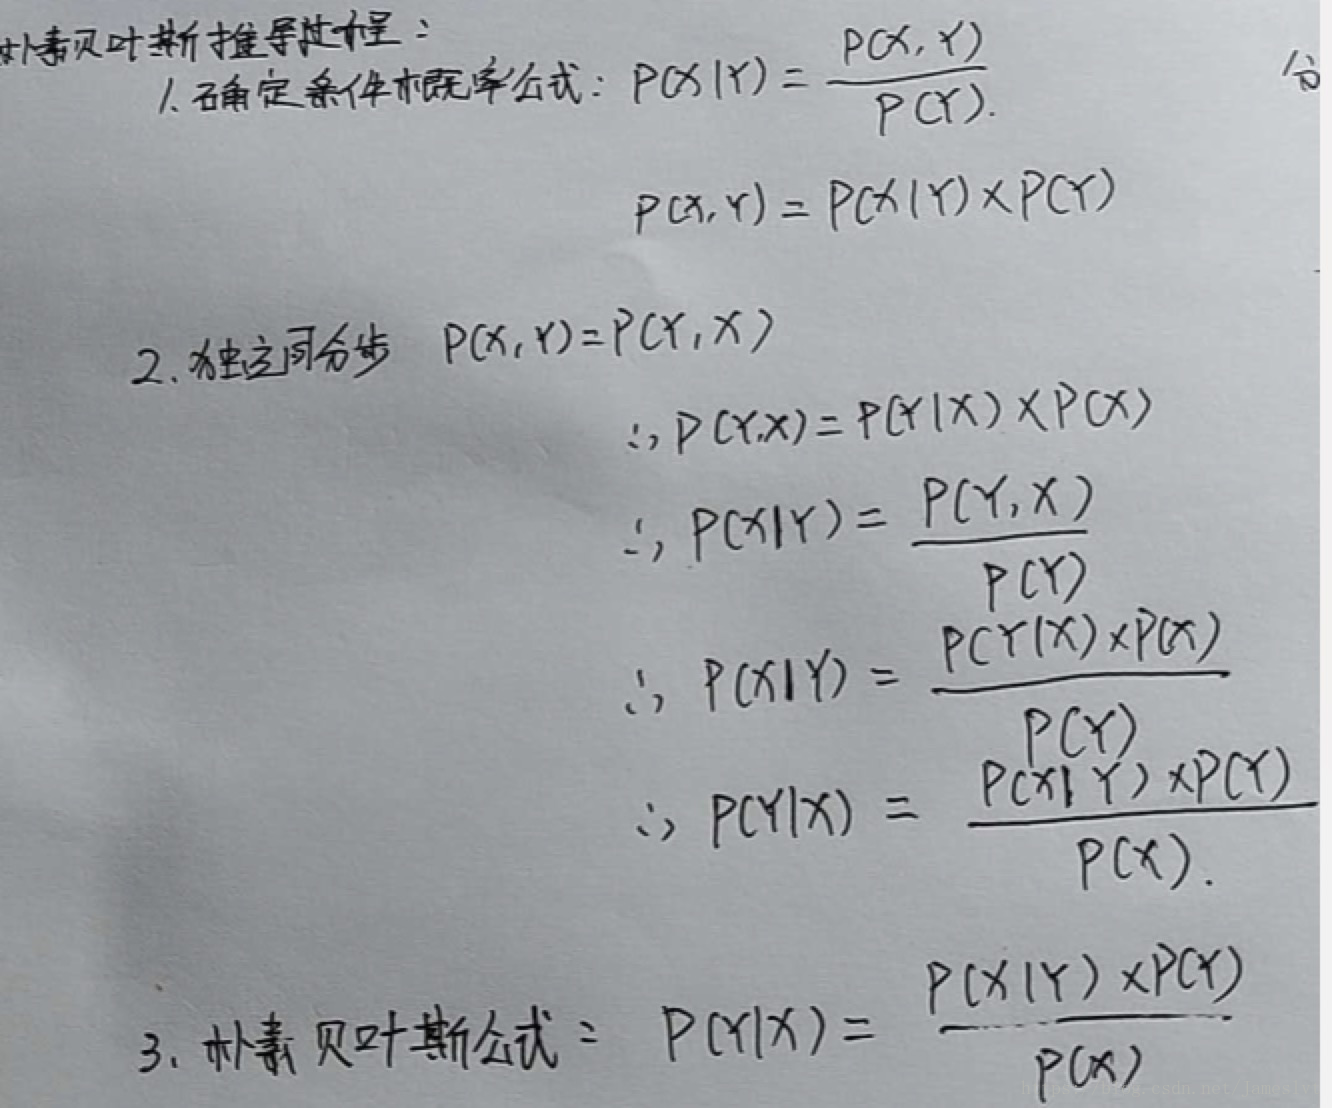 朴素贝叶斯推导过程：
1.确定条件概率公式： P(X|Y) = P(X,Y) / P(Y).
分
P(X,Y) = P(X|Y)×P(Y)
2.独立同分步 P(X,Y)=P(Y,X)
∴, P(Y,X) = P(Y|X)×P(X)
∴, P(X|Y) = P(Y,X) / P(Y)
∴, P(X|Y) = P(Y|X)×P(X) / P(Y)
∴, P(Y|X) = P(X|Y)×P(Y) / P(X).
3.朴素贝叶斯公式： P(Y|X) = P(X|Y)×P(Y) / P(X)